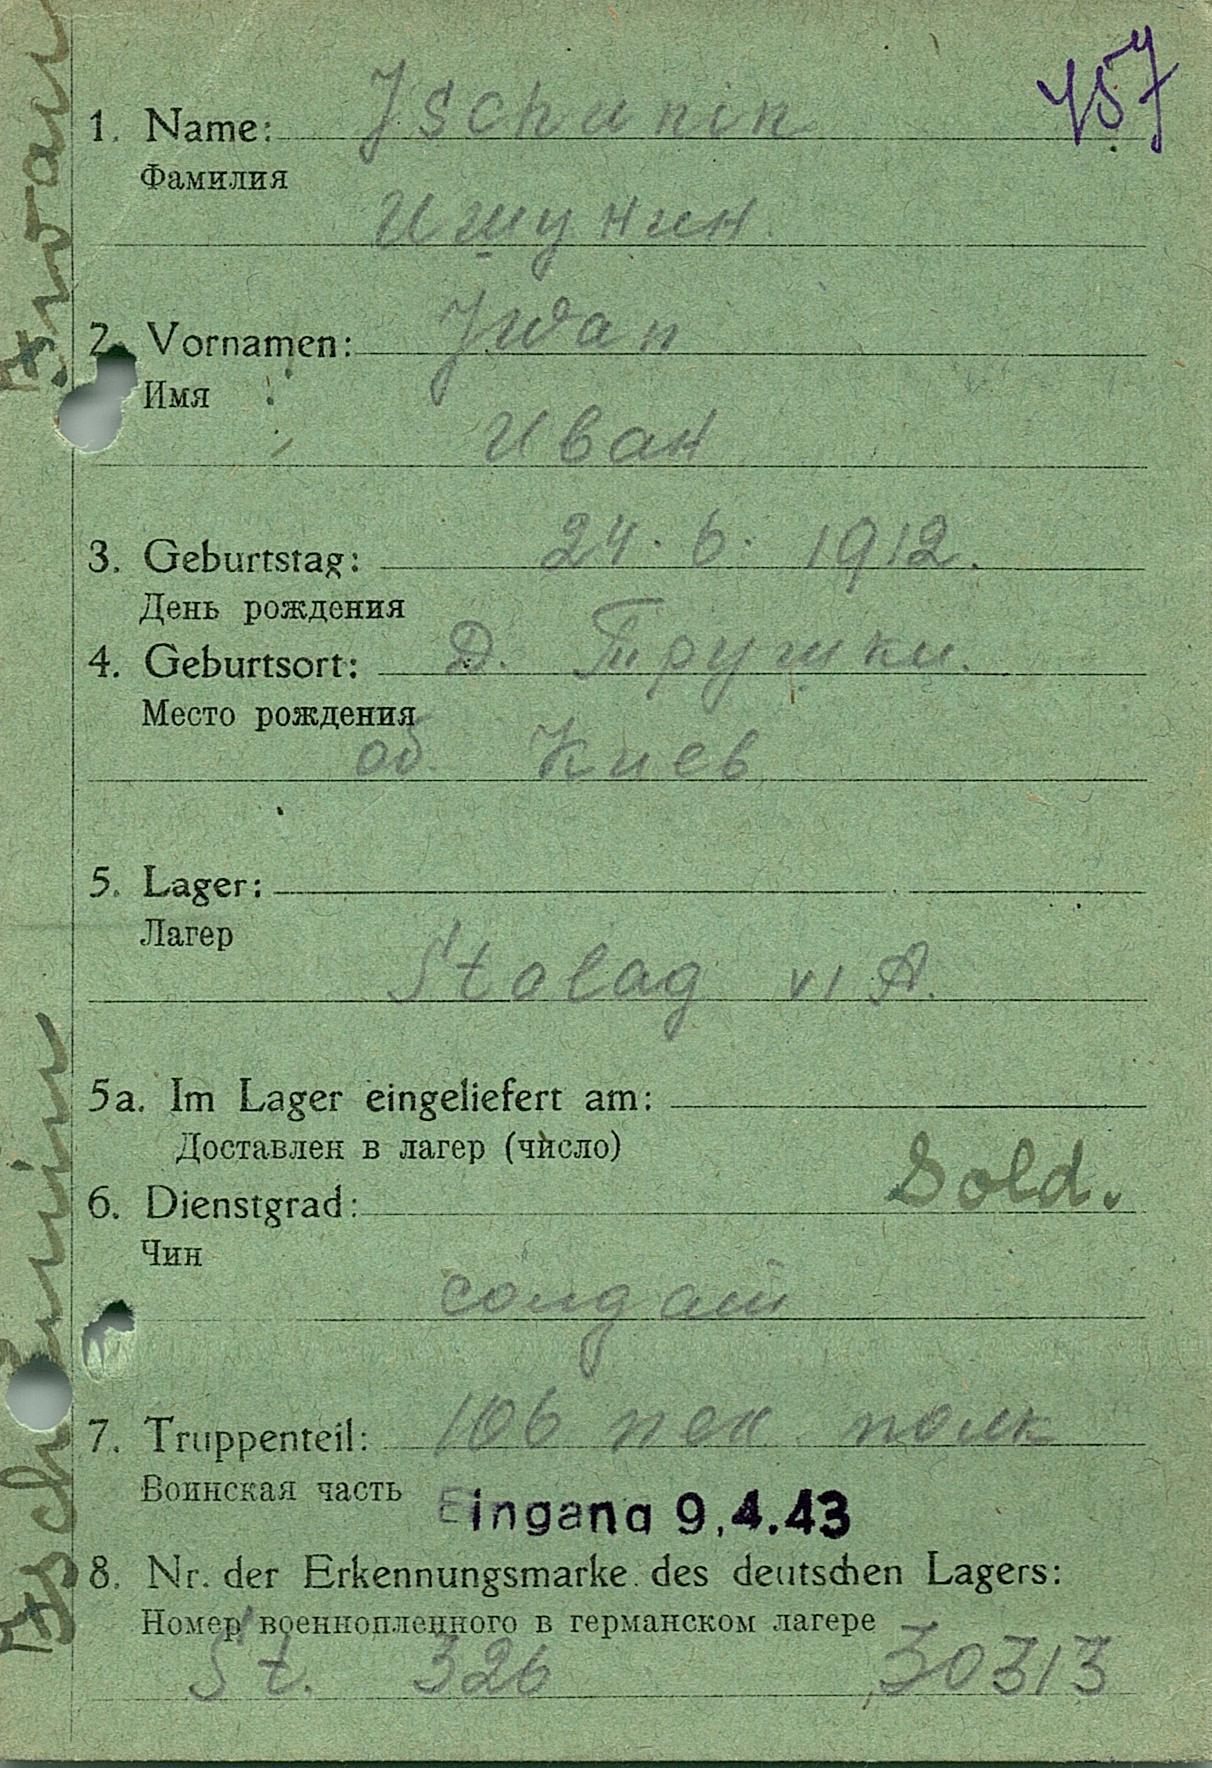 457
1. Name: Jschunin
Фамилия
Ишунин
2. Vornamen: Jwan
Имя
Иван
3. Geburtstag: 24. 6. 1912.
День рождения
4. Geburtsort: Д. Трушки.
Место рождения
об. Киев
5. Lager:
Лагер
Stalag VI A.
5a. Im Lager eingeliefert am:
Доставлен в лагер (число)
Sold.
6. Dienstgrad:
Чин
солдат
7. Truppenteil: 106 пех. полк
Воинская часть
Eingang 9.4.43
8. Nr. der Erkennungsmarke des deutschen Lagers:
Номер военнопленного в германском лагере
St. 326 30313
Jschunin Jwan